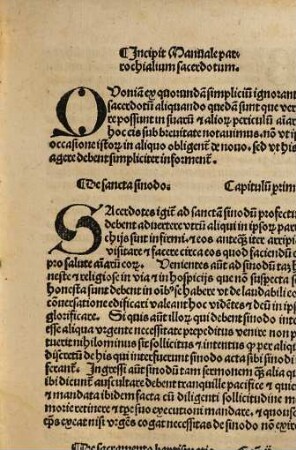 ¶Incipit Manuale par-
rochialium sacerdotum.
QUoniā ex quorundam simpliciū ignorant
sacerdotū aliquando quedā sunt que ver
re possunt in suarū ⁊ alioꝝ periculū aīaꝝ
hoc cās sub breuitate notauimus. nō vt ip
occasione istoꝝ in aliquo obligent̄ de nouo. sed vt his
agere debent simpliciter informent̄.
¶De sancta sinodo. Capitulū prim
SAcerdotes igit̄ ad sanctam sinodū profectur
debent aduertere vtrū aliqui in ipsoꝝ par
chijs sunt infirmi. ⁊ eos anteq̄ iter arripi
visitare ⁊ facere circa eos quod faciendū e
pro salute aīarū eoꝝ. Venientes aūt ad sinodū tāꝫ h
neste ⁊ religiose in via ⁊ in hospicijs que nō suspecta s
honesta sunt debent in oībꝰ se habere vt de laudabili eo
conuersatione edificari valeant hoc vidētes ⁊ deū in ip
glorificare. Si quis aūt illoꝝ qui debent sinodo inte
esse aliqua vrgente necessitate prepeditus venire non p
tuerit nihilominus sit sollicitus ⁊ intentus ꝙ per aliqu
discretū de his qui interfuerunt sinodo acta sibi sinodi
ferant̄. Ingressi aūt sinodū tam sermonem q̄ alia q
ibi dicunt̄ auscultare debent tranquille pacifice ⁊ quiet
⁊ mandata ibidem facta cū diligenti sollicitudine m
morie retinere ⁊ tꝑe suo executioni mandare. ⁊ quousq
pos exeat nisi vrgēs cogat necessitas de sinodo nō exirt